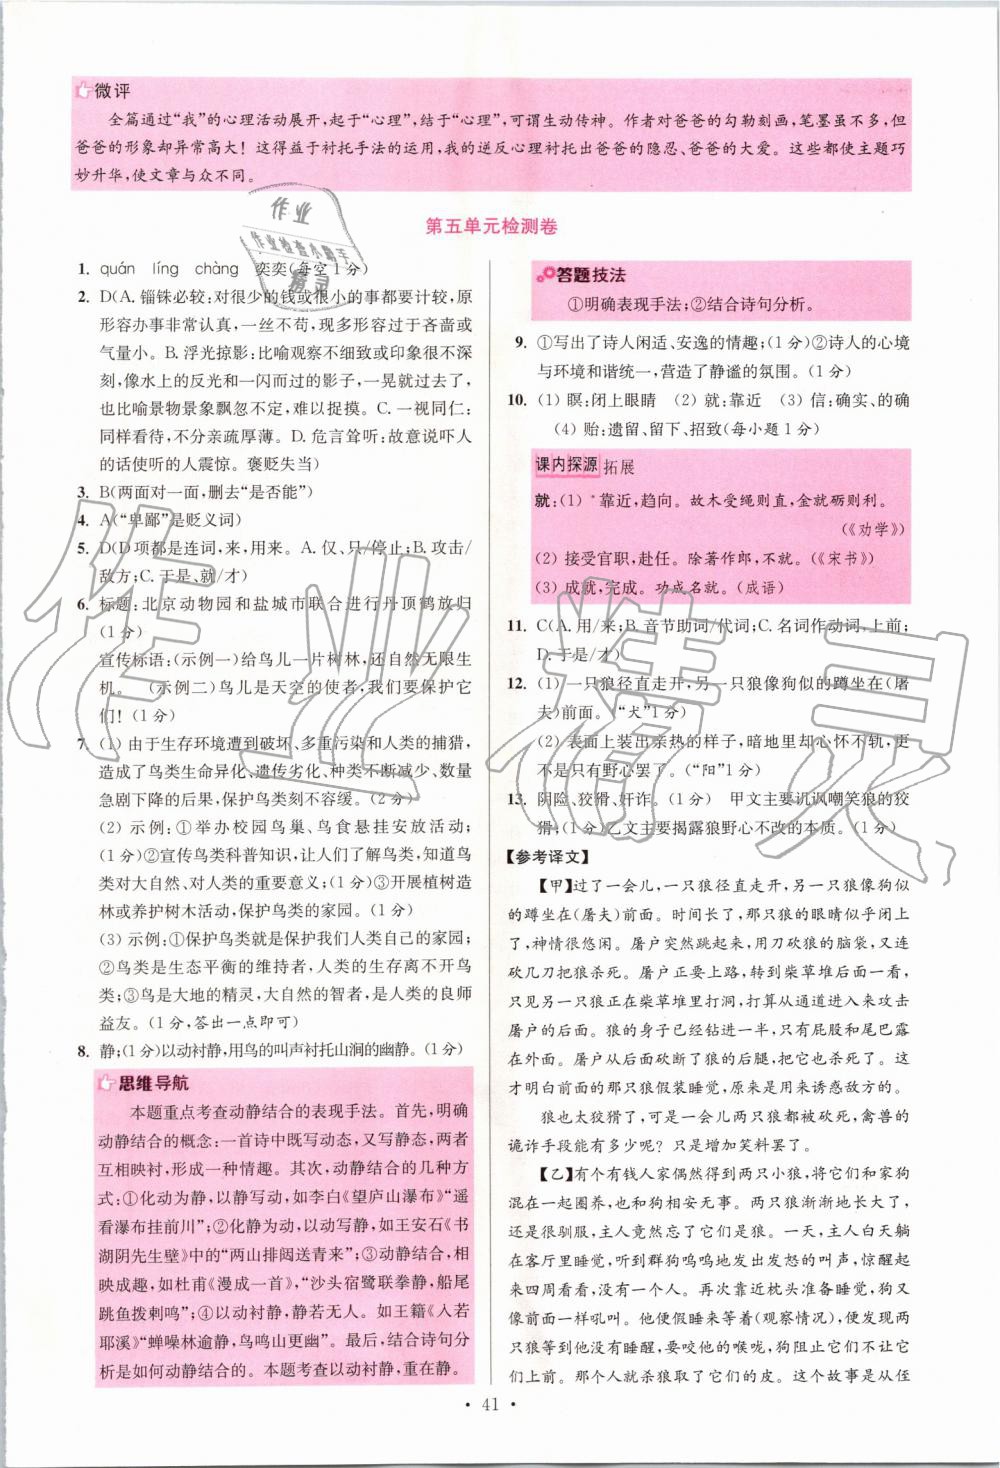 微评
全篇通过“我”的心理活动展开,起于“心理”,结于“心理”,可谓生动传神。作者对爸爸的勾勒刻画,笔墨虽不多,但
爸爸的形象却异常高大!这得益于衬托手法的运用,我的逆反心理衬托出爸爸的隐忍、爸爸的大爱。这些都使主题巧
妙升华,使文章与众不同。
第五单元检测卷
1. quán líng chàng 奕奕(每空1分)
2. D(A.锱铢必较:对很少的钱或很小的事都要计较,原
形容办事非常认真,一丝不苟,现多形容过于吝啬或
气量小。B.浮光掠影:比喻观察不细致或印象很不深
刻,像水上的反光和一闪而过的影子,一晃就消逝,
也比喻景物景象飘忽不定,难以捉摸。C.一视同仁:
同样看待,不分亲疏厚薄。D.危言耸听:故意说吓人
的话使听的人震惊。褒贬失当)
3. B(两面对一面,删去“是否能”)
4. A(“卑鄙”是贬义词)
5. D(D项都是连词,来,用来。A.仅、只/停止;B.攻击/
敌方;C.于是、就/才)
6. 标题:北京动物园和盐城市联合进行丹顶鹤放归
(1分)
宣传标语:(示例一)给鸟儿一片树林,还自然无限生
机。 (示例二)鸟儿是天空的使者,我们要保护它
们!(1分)
7. (1) 由于生存环境遭到破坏、多重污染和人类的捕猎,
造成了鸟类生命异化、遗传劣化、种类不断减少、数量
急剧下降的后果,保护鸟类刻不容缓。(2分)
(2) 示例:①举办校园鸟巢、鸟食悬挂安放活动;
(1分)②宣传鸟类科普知识,让人们了解鸟类,知道鸟
类对大自然、对人类的重要意义;(1分)③开展植树造
林或养护树木活动,保护鸟类的家园。(1分)
(3) 示例:①保护鸟类就是保护我们人类自己的家园;
②鸟类是生态平衡的维持者,人类的生存离不开鸟
类;③鸟是大地的精灵,大自然的智者,是人类的良师
益友。(1分,答出一点即可)
8. 静;(1分)以动衬静,用鸟的叫声衬托山涧的幽静。(1分)
思维导航
本题重点考查动静结合的表现手法。首先,明确
动静结合的概念:一首诗中既写动态,又写静态,两者
互相映衬,形成一种情趣。其次,动静结合的几种方
式:①化动为静,以静写动,如李白《望庐山瀑布》“遥
看瀑布挂前川”;②化静为动,以动写静,如王安石《书
湖阴先生壁》中的“两山排闼送青来”;③动静结合,相
映成趣,如杜甫《漫成一首》,“沙头宿鹭联拳静,船尾
跳鱼拨剌鸣”;④以动衬静,静若无人。如王籍《入若
耶溪》“蝉噪林逾静,鸟鸣山更幽”。最后,结合诗句分
析是如何动静结合的。本题考查以动衬静,重在静。
答题技法
①明确表现手法;②结合诗句分析。
9. ①写出了诗人闲适、安逸的情趣;(1分)②诗人的心境
与环境和谐统一,营造了静谧的氛围。(1分)
10. (1) 暝:闭上眼睛 (2) 就:靠近 (3) 信:确实、的确
(4) 贻:遗留、留下、招致(每小题1分)
课内探源 拓展
就:(1) *靠近,趋向。故木受绳则直,金就砺则利。
(《劝学》)
(2) 接受官职,赴任。除著作郎,不就。(《宋书》)
(3) 成就,完成。功成名就。(成语)
11. C(A.用/来;B.音节助词/代词;C.名词作动词,上前;
D.于是/才)
12. (1) 一只狼径直走开,另一只狼像狗似的蹲坐在(屠
夫)前面。(“犬”1分)
(2) 表面上装出亲热的样子,暗地里却心怀不轨,更
不是只有野心罢了。(“阳”1分)
13. 阴险、狡猾、奸诈。(1分) 甲文主要讥讽嘲笑狼的狡
猾;(1分)乙文主要揭露狼野心不改的本质。(1分)
【参考译文】
【甲】过了一会儿,一只狼径直走开,另一只狼像狗似
的蹲坐在(屠夫)前面。时间长了,那只狼的眼睛似乎闭上
了,神情很悠闲。屠户突然跳起来,用刀砍狼的脑袋,又连
砍几刀把狼杀死。屠户正要上路,转到柴草堆后面一看,
只见另一只狼正在柴草堆里打洞,打算从通道进入来攻击
屠户的后面。狼的身子已经钻进一半,只有屁股和尾巴露
在外面。屠户从后面砍断了狼的后腿,把它也杀死了。这
才明白前面的那只狼假装睡觉,原来是用来诱惑敌方的。
狼也太狡猾了,可是一会儿两只狼都被砍死,禽兽的
诡诈手段能有多少呢?只是增加笑料罢了。
【乙】有个有钱人家偶然得到两只小狼,将它们和家狗
混在一起圈养,也和狗相安无事。两只狼渐渐地长大了,
还是很驯服,主人竟然忘了它们是狼。一天,主人白天躺
在客厅里睡觉,听到群狗呜呜地发出发怒的叫声,惊醒起
来四周看看,没有一个人。再次靠近枕头准备睡觉,狗又
像前面一样吼叫。他便假睡来等着(观察情况),发现两只
狼等到他没有醒觉,要咬他的喉咙,狗阻止它们不让它们
上前。那个人就杀狼取了它们的皮。这个故事是从侄
• 41 •
作业
作业检查小助手
精灵
作业精灵